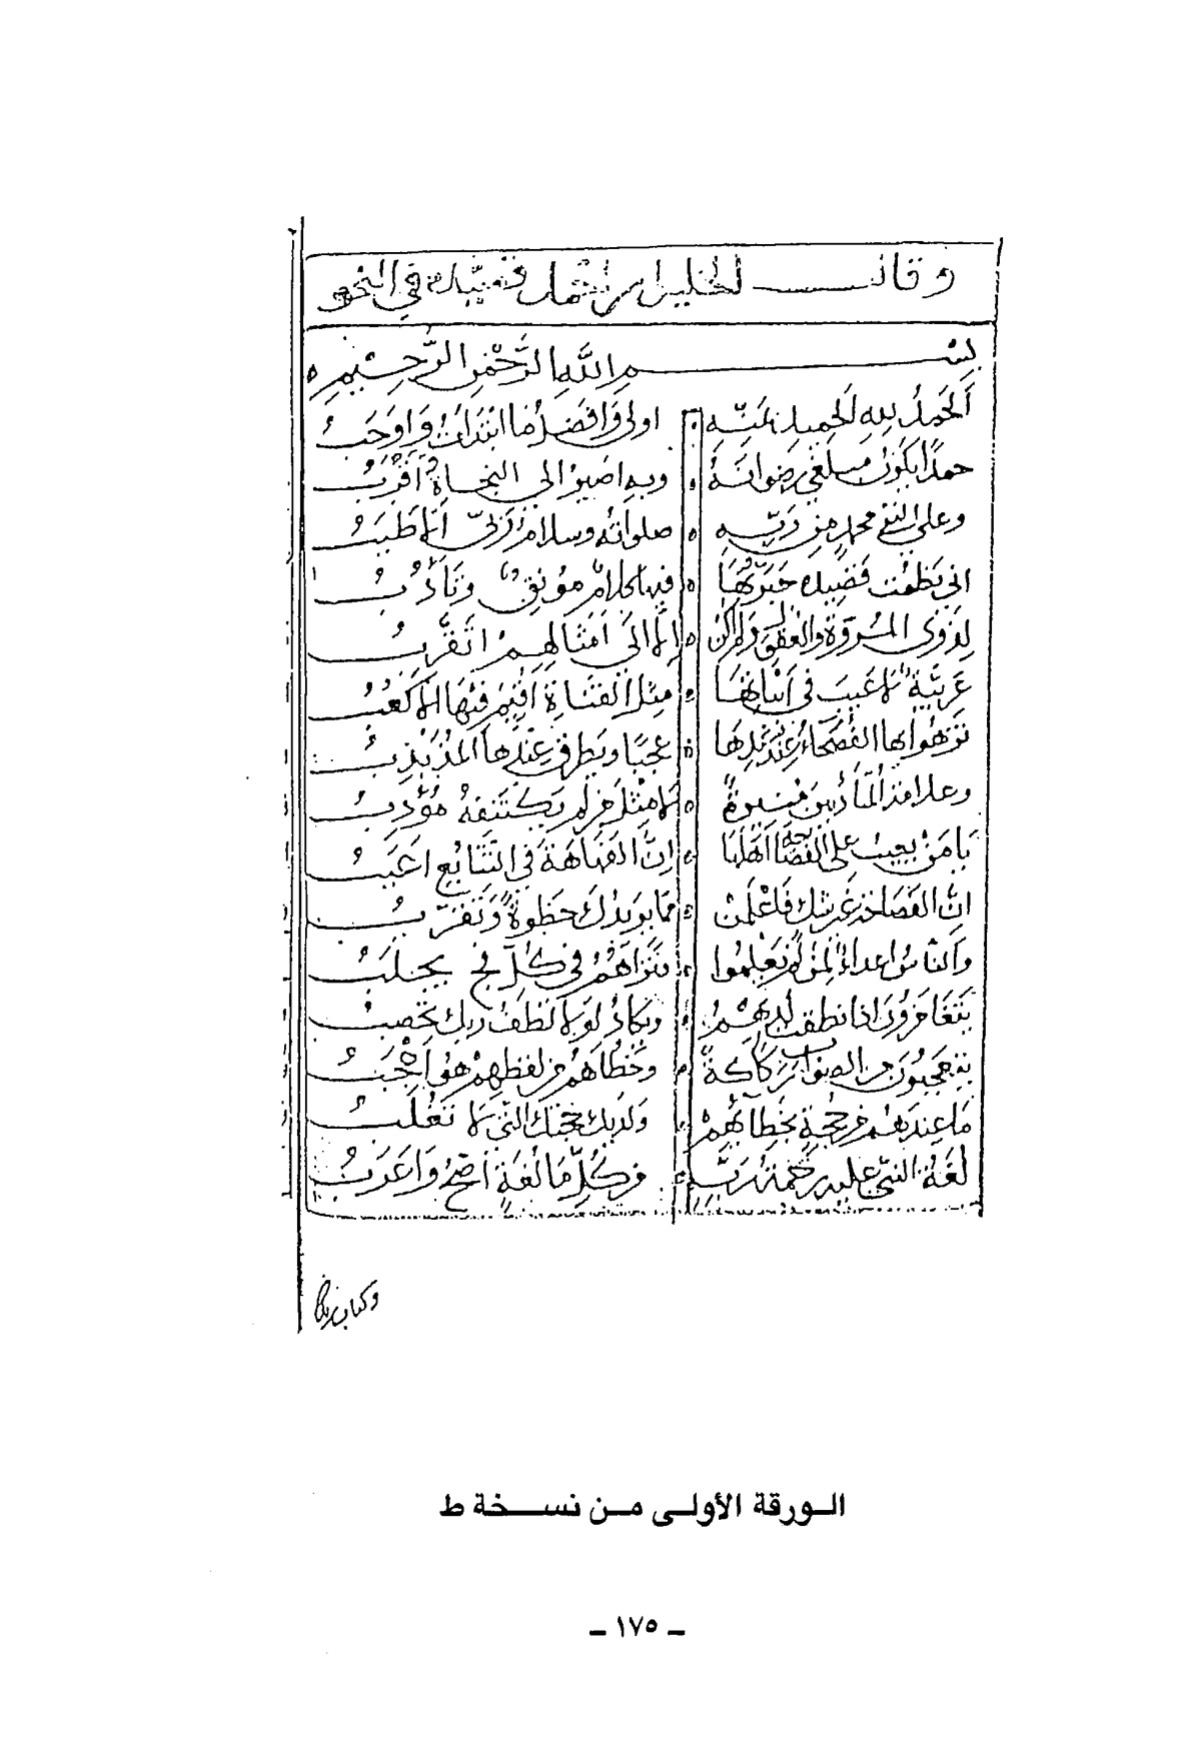 وقال الخليل بن احمد قصيدة في النحو
بسم الله الرحمن الرحيم
الحمد لله الحميد بمنه اولى وافضل ما ابتدأت واوجب
حمدا يكون مبلغي رضوانه وبه اصير الى النجاة واقرب
وعلى النبي محمد من ربه صلواته وسلام ربي الاطيب
اني نظمت قصيدة حبرتها فيها كلام مونق وتأدب
لذوي المروة والعقول ولم اكن الا الى امثالهم اتقرب
عربية لا عيب في ابياتها مثل القناة اقيم فيها الاكعب
تزهوا بها الفصحاء عند نشيدها عجبا ويطرق عندها المذبذب
وعلامة المتأدبين منيرة لا مثل من لم يكتنفه مؤدب
يا من يعيب على الفصاحة اهلها ان الفهاهة في التتايع اعيب
ان الفصاحة غير شك فاعلمن مما يزيدك حظوة وتقرب
والناس اعداء لمن لم يعلموا فتراهم في كل فج يجلب
يتغامزون اذا نطقت لديهم وتكاد لولا لطف ربك تحصب
يتعجبون من الصواب ركاكة وخطاهم من لفظهم هو اعجب
ما عندهم من حجة بخطائهم ولديك حجتك التي لا تغلب
لغة النبي عليه رحمة ربه من كل ما لغة اصح واعرب
وكتاب ربك
الورقة الأولى من نسخة ط
- ١٧٥ -